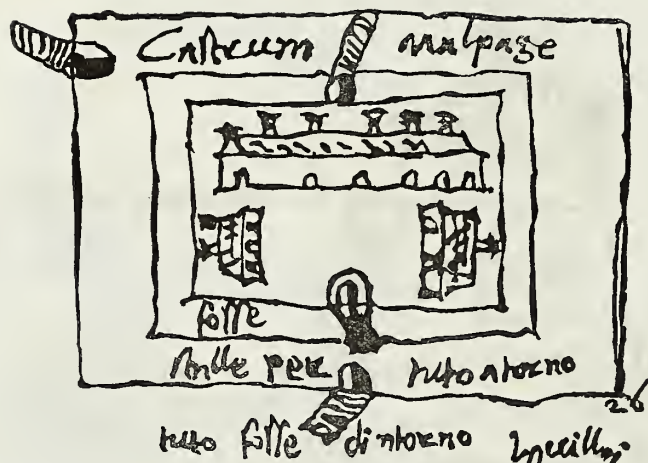 Castrum malpage
fosse
stalle per tuto ntorno
26
tuto fosse dintorno